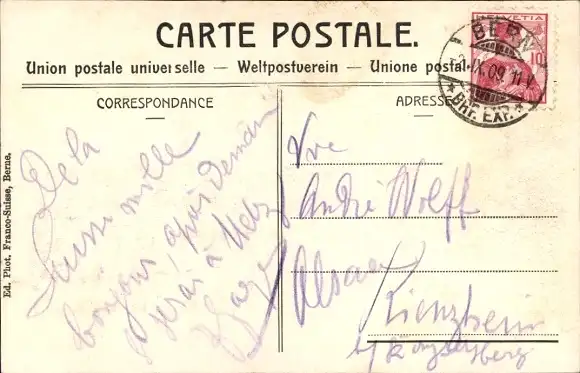 CARTE POSTALE.
Union postale universelle — Weltpostverein — Unione postale
HELVETIA
10
BERN
IX.09.11
BHF. EXP.
CORRESPONDANCE
ADRESSE
De la
Suisse mille
bonjours, après demain
serai à Metz
Vve
André Wolff
Alsace
Kienzheim
b/ Kaysersberg
Ed. Phot. Franco-Suisse, Berne.